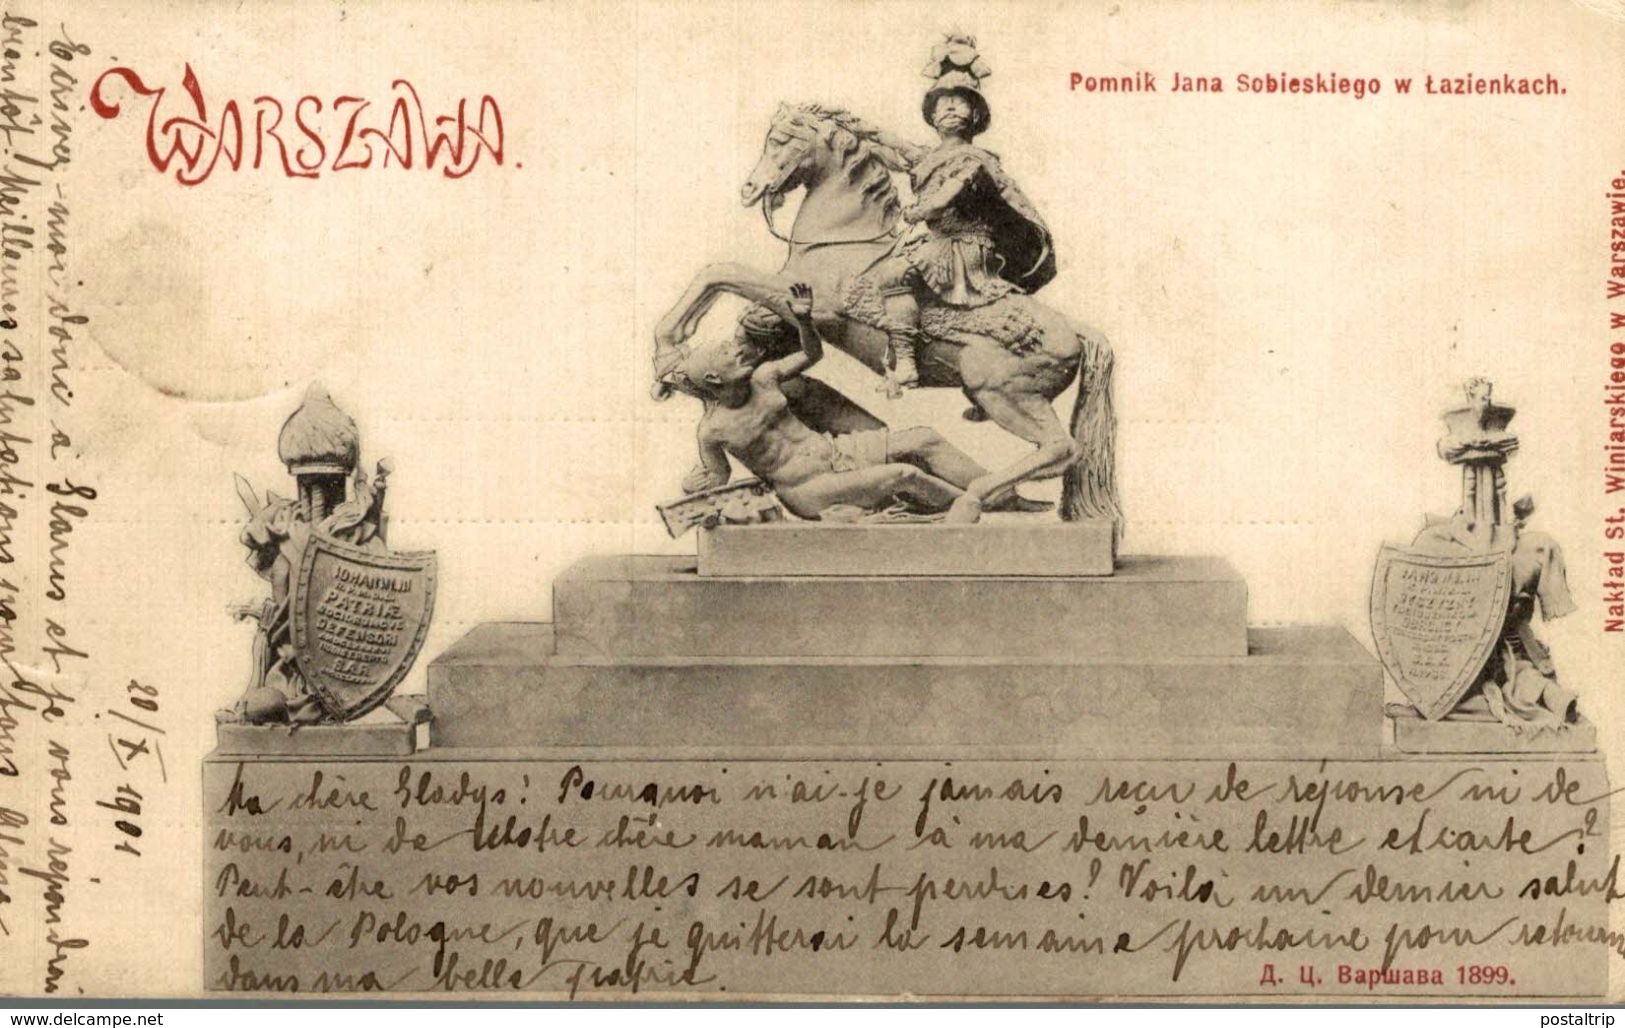 WARSZAWA.
Pomnik Jana Sobieskiego w Łazienkach.
Nakład St. Winiarskiego w Warszawie.
PATRIÆ
DEFENSORI
Ma chère Gladys! Pourquoi n'ai-je jamais reçu de réponse ni de
vous, ni de Votre chère maman à ma dernière lettre et carte?
Peut-être vos nouvelles se sont perdues! Voilà un dernier salut
de la Pologne, que je quitterai la semaine prochaine pour retourner
dans ma belle patrie.
Д. Ц. Варшава 1899.
20/X 1901
Ecrivez-moi donc à Glarus et je vous répondrai
bientôt! Meilleures salutations pour tous
www.delcampe.net
postaltrip